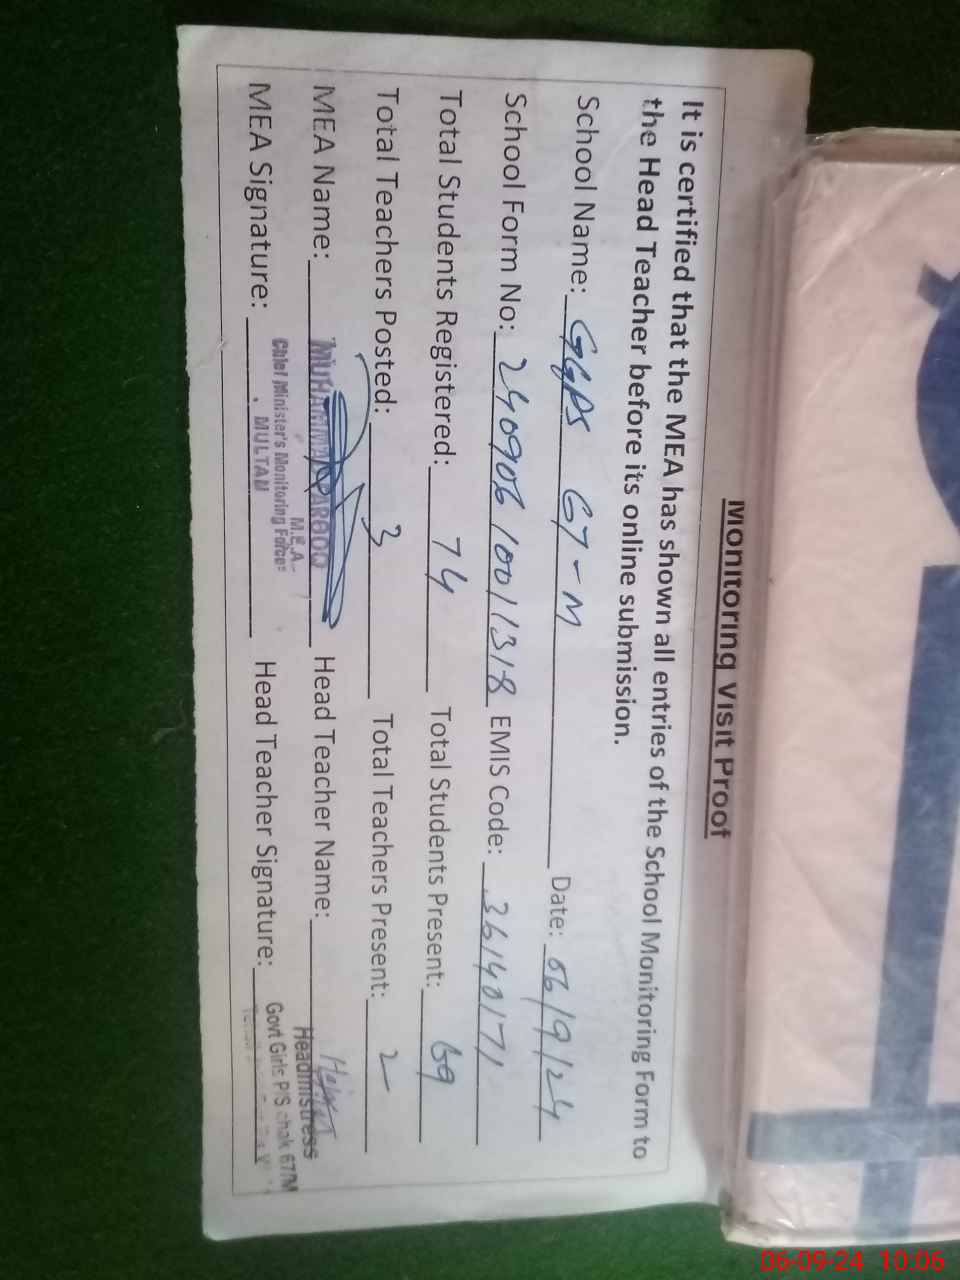 Monitoring Visit Proof
It is certified that the MEA has shown all entries of the School Monitoring Form to
the Head Teacher before its online submission.
School Name: GGPS 67-M Date: 06/9/24
School Form No: 2409061001318 EMIS Code: 36140171
Total Students Registered: 74 Total Students Present: 69
Total Teachers Posted: 3 Total Teachers Present: 2
MEA Name: MUHAMMAD FAROOQ Head Teacher Name:
M.E.A. Headmistress
MEA Signature: Chief Minister's Monitoring Force Head Teacher Signature: Govt Girls P/S chak 67/M
MULTAN
06-09-24 10:06